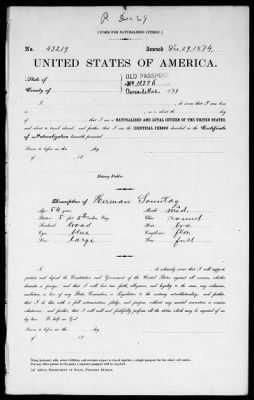 [FORM FOR NATURALIZED CITIZEN.]
No. 43219 Issued Dec. 29, 1874.
UNITED STATES OF AMERICA.
State of
County of
OLD PASSPORT
December 1871
I, do swear that I was born
in on or about the day
of that I am a NATURALIZED AND LOYAL CITIZEN OF THE UNITED STATES,
and about to travel abroad; and further, that I am the IDENTICAL PERSON described in the Certificate
of Naturalization herewith presented.
Sworn to before me this day
of 18
Notary Public.
Description of Herman Sonntag
Age: 54 years Mouth: med.
Stature: 5 feet inches, Eng. Chin: round
Forehead: broad Hair: bro.
Eyes: blue Complexion: flor.
Nose: large Face: full
I, do solemnly swear that I will support,
protect, and defend the Constitution and Government of the United States against all enemies, whether
domestic or foreign; and that I will bear true faith, allegiance, and loyalty to the same, any ordinance,
resolution, or law of any State, Convention, or Legislature to the contrary notwithstanding; and further,
that I do this with a full determination, pledge, and purpose, without any mental reservation or evasion
whatsoever; and further, that I will well and faithfully perform all the duties which may be required of me
by law. So help me God.
Sworn to before me this day
of 18